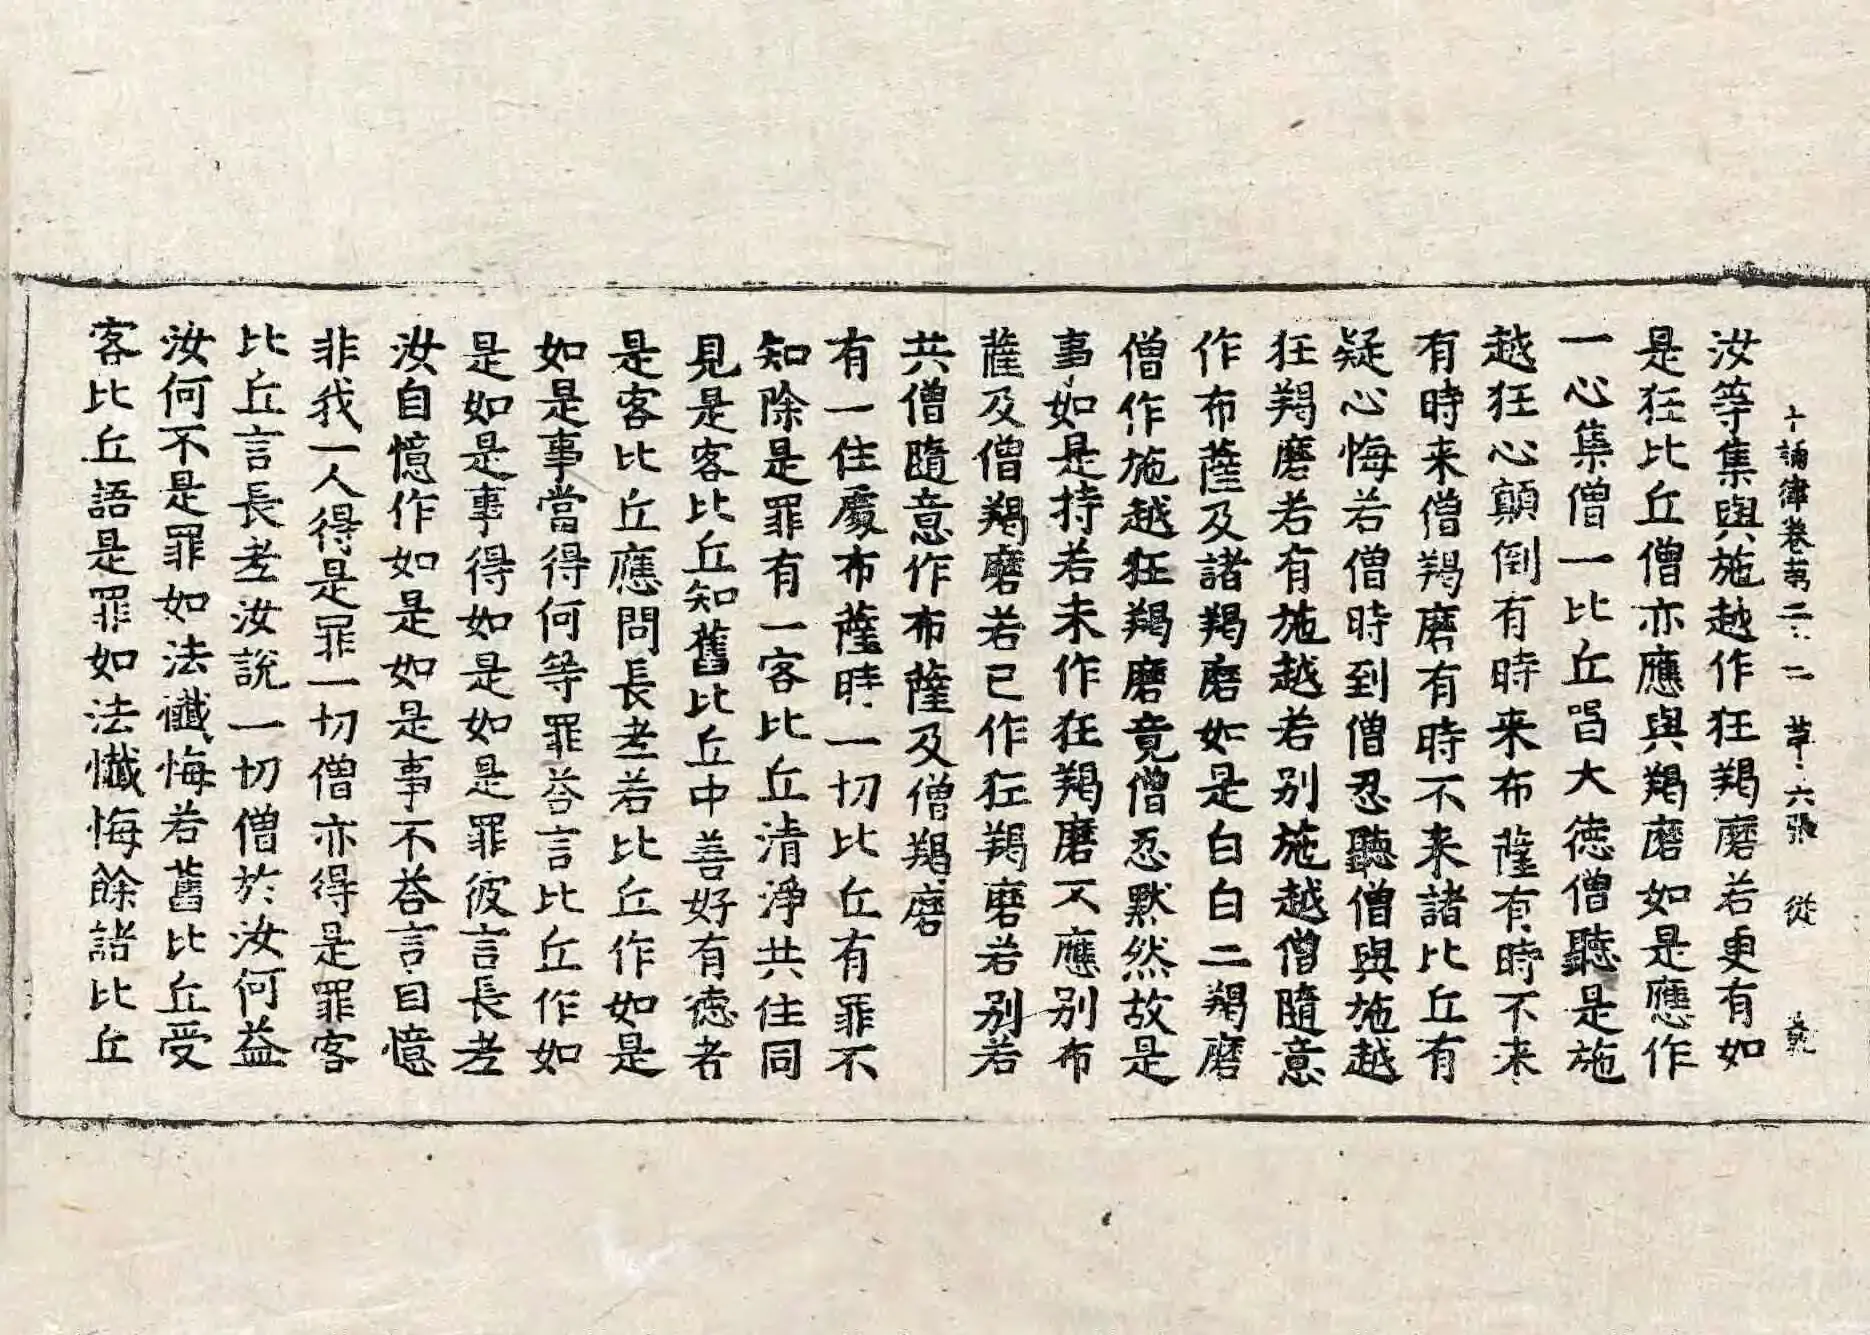 十誦律卷第二二 第六張 從
汝等集與施越作狂羯磨若更有如
是狂比丘僧亦應與羯磨如是應作
一心集僧一比丘唱大德僧聽是施
越狂心顛倒有時来布薩有時不来
有時来僧羯磨有時不来諸比丘有
疑心悔若僧時到僧忍聽僧與施越
狂羯磨若有施越若別施越僧隨意
作布薩及諸羯磨如是白白二羯磨
僧作施越狂羯磨竟僧忍默然故是
事如是持若未作狂羯磨不應別布
薩及僧羯磨若已作狂羯磨若別若
共僧隨意作布薩及僧羯磨
有一住處布薩時一切比丘有罪不
知除是罪有一客比丘清淨共住同
見是客比丘知舊比丘中善好有德者
是客比丘應問長老若比丘作如是
如是事當得何等罪荅言比丘作如
是如是事得如是如是罪彼言長老
汝自憶作如是如是事不荅言自憶
非我一人得是罪一切僧亦得是罪客
比丘言長老汝說一切僧於汝何益
汝何不是罪如法懺悔若舊比丘受
客比丘語是罪如法懺悔餘諸比丘